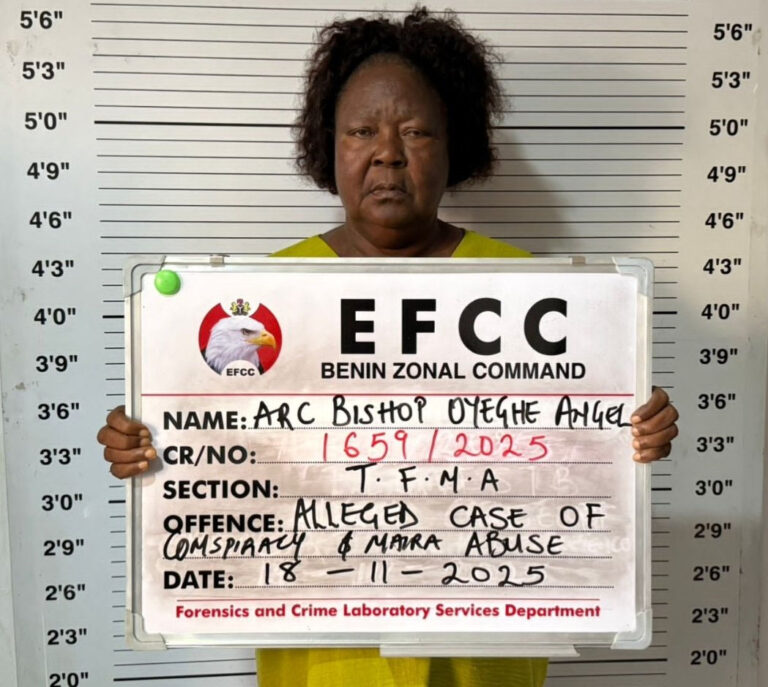 5'6"
5'3"
5'0"
4'9"
4'6"
4'3"
4'0"
3'9"
3'6"
3'3"
3'0"
2'9"
2'6"
2'3"
2'0"
5'6"
5'3"
5'0"
4'9"
4'6"
4'3"
4'0"
3'9"
3'6"
3'3"
3'0"
2'9"
2'6"
2'3"
2'0"
EFCC
EFCC
BENIN ZONAL COMMAND
NAME: ARC BISHOP OYEGHE ANGEL
CR/NO: 1659/2025
SECTION: T.F.M.A
OFFENCE: ALLEGED CASE OF
COMSPIRACY & MAIRA ABUSE
DATE: 18-11-2025
Forensics and Crime Laboratory Services Department